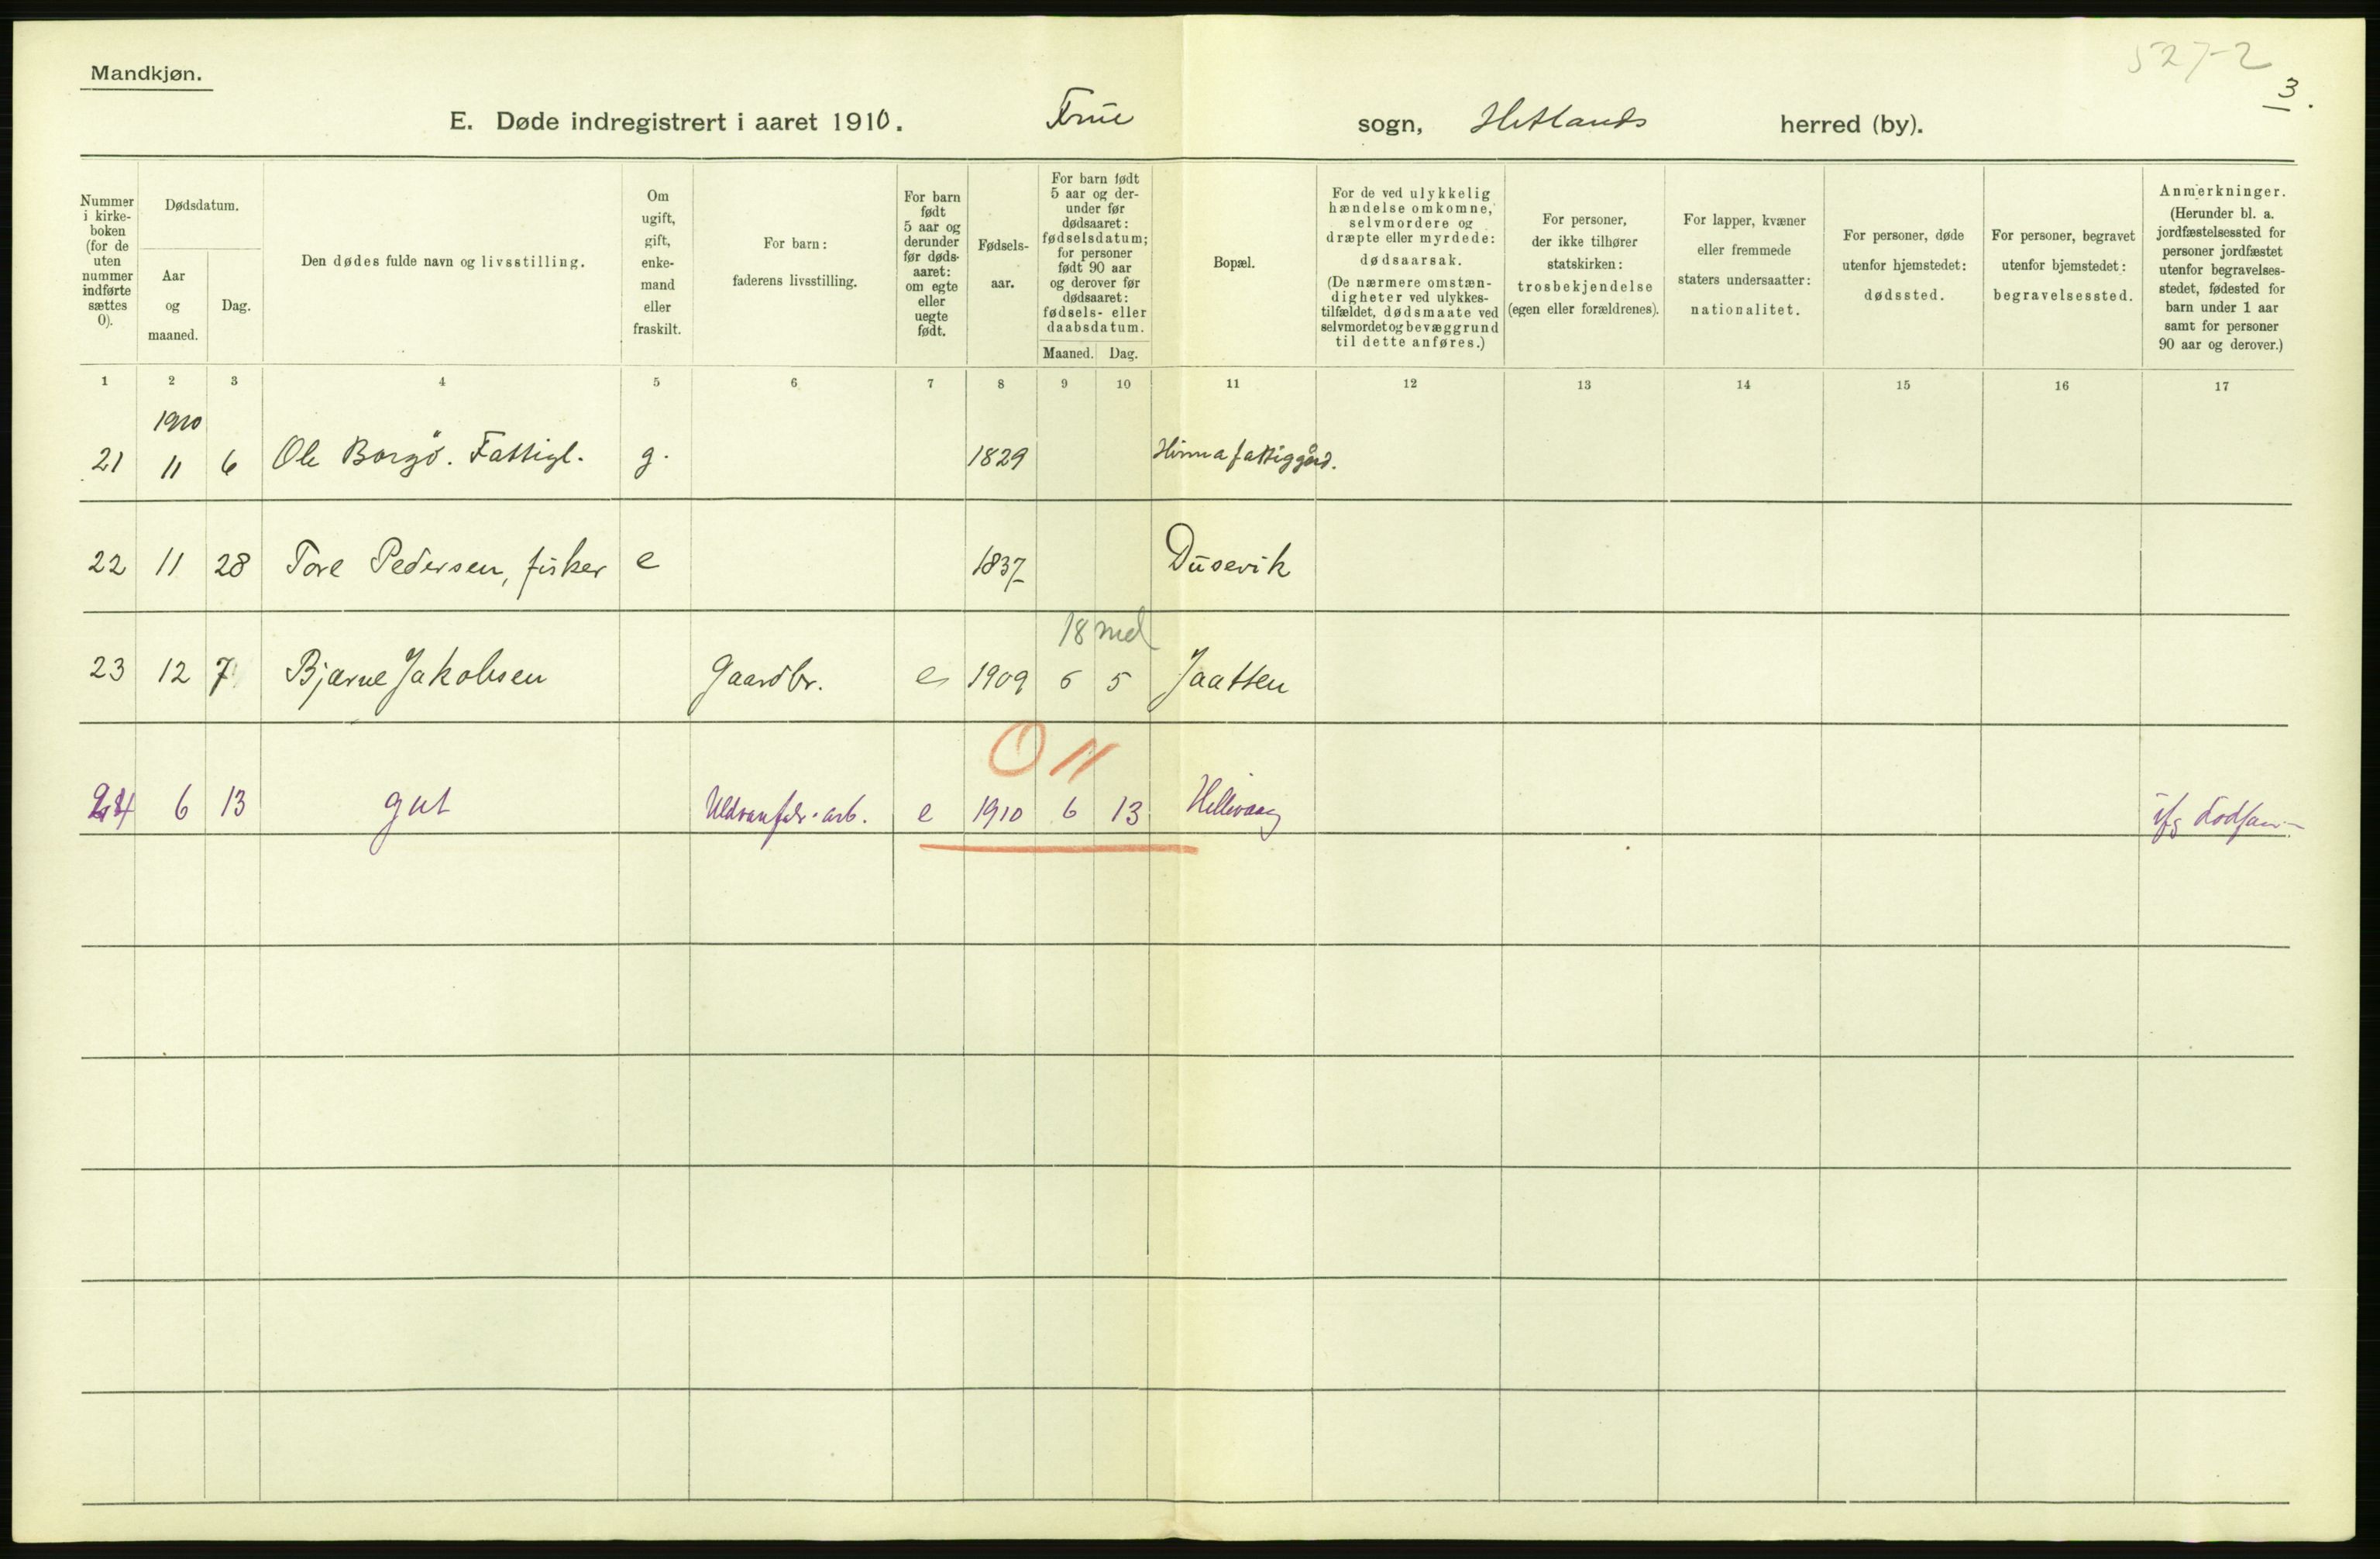 527-2
3.
Mandkjøn.
E. Døde indregistrert i aaret 1910. Frue sogn, Hetlands herred (by).
Nummer i kirke- boken (for de uten nummer indførte sættes 0).
Dødsdatum.
Aar og maaned.
Dag.
Den dødes fulde navn og livsstilling.
Om ugift, gift, enke- mand eller fraskilt.
For barn: faderens livsstilling.
For barn født 5 aar og derunder før døds- aaret: om egte eller uegte født.
Fødsels- aar.
For barn født 5 aar og der- under før dødsaaret: fødselsdatum; for personer født 90 aar og derover før dødsaaret: fødsels- eller daabsdatum.
Maaned. Dag.
Bopæl.
For de ved ulykkelig hændelse omkomne, selvmordere og dræpte eller myrdede: dødsaarsak. (De nærmere omstæn- digheter ved ulykkes- tilfældet, dødsmaate ved selvmordet og bevæggrund til dette anføres.)
For personer, der ikke tilhører statskirken: trosbekjendelse (egen eller forældrenes).
For lapper, kvæner eller fremmede staters undersaatter: nationalitet.
For personer, døde utenfor hjemstedet: dødssted.
For personer, begravet utenfor hjemstedet: begravelsessted.
Anmerkninger. (Herunder bl. a. jordfæstelsessted for personer jordfæstet utenfor begravelses- stedet, fødested for barn under 1 aar samt for personer 90 aar og derover.)
1 2 3 4 5 6 7 8 9 10 11 12 13 14 15 16 17
1910
21 11 6 Ole Borgö. Fattigl. g. 1829 Hinna fattiggård.
22 11 28 Tore Pedersen, fisker e 1837 Dusevik
18 md
23 12 7 Bjarne Jakobsen Gaardbr. e 1909 6 5 Jaatten
0 11
24 6 13 gut Uldvarefabr. arb. e 1910 6 13 Hillevaag